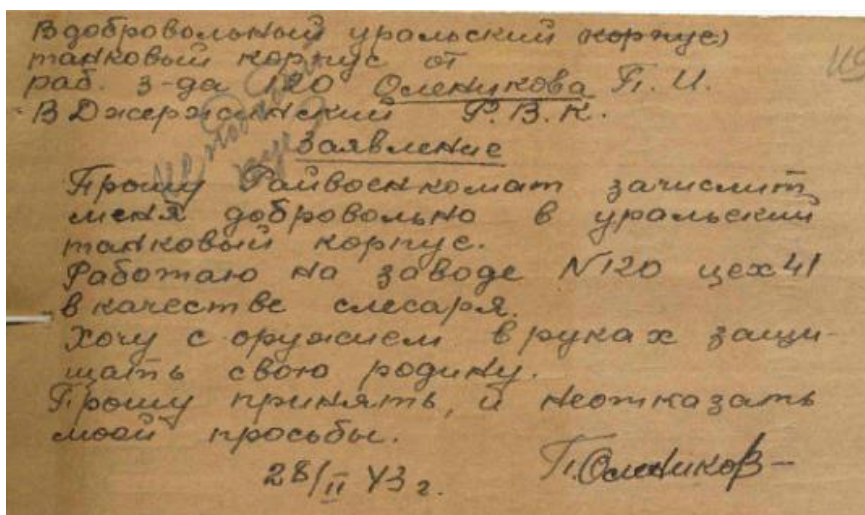 В добровольный уральский корпус)
танковый корпус от
раб. з-да 120 Оленикова П. И.
В Джержинский Р.В.К.
Заявление
Прошу Райвоенкомат зачислит
меня добровольно в уральский
танковый корпус.
Работаю на заводе N120 цех 41
в качестве слесаря.
Хочу с оружием в руках защи-
щать свою родину.
Прошу принять, и неотказать
моей просьбы.
28/II 43 г. П. Олеников